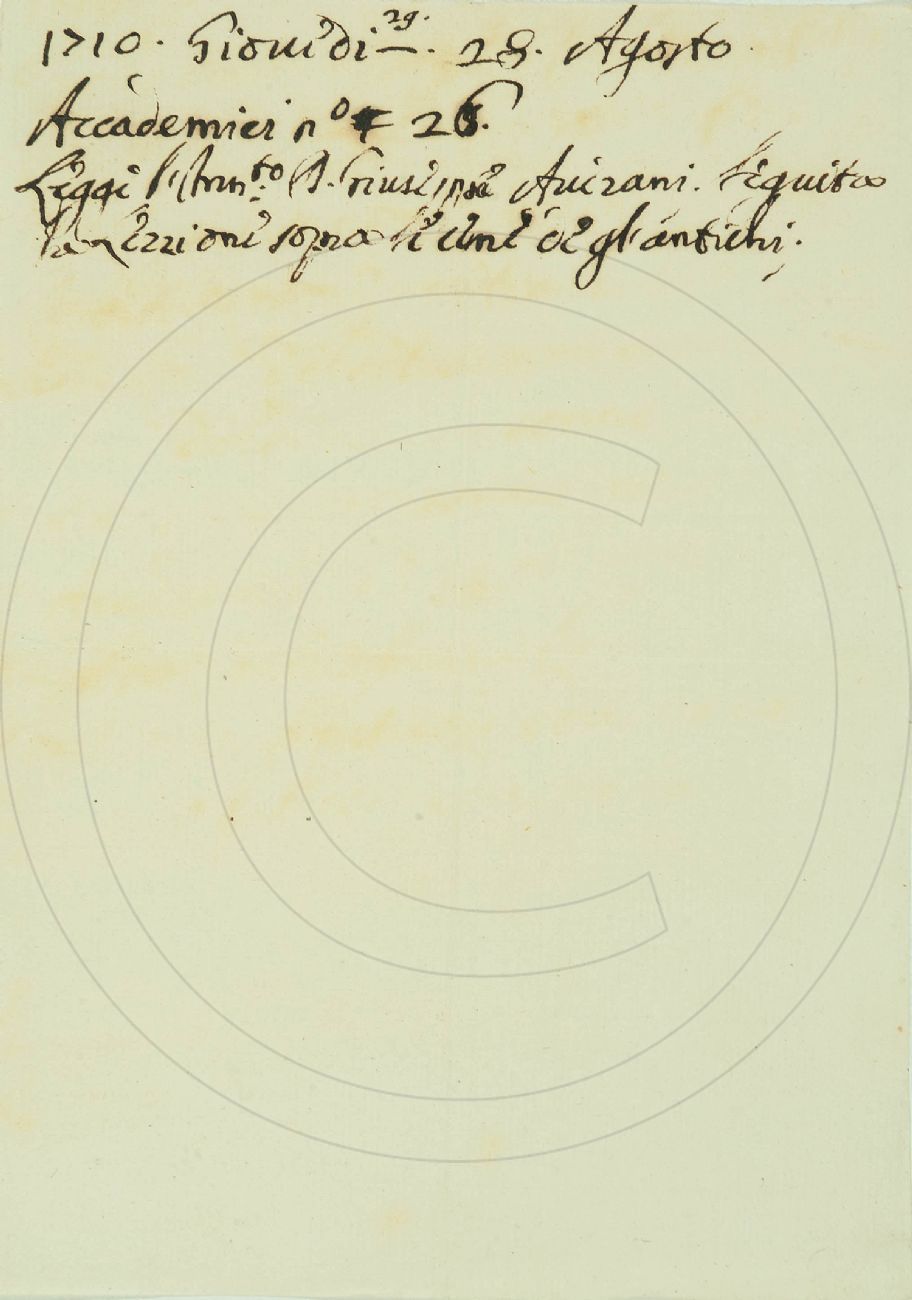 1710. Giouedi 29. 28. Agosto
Accademici nº 26.
Leggè l'strum.to D. Giuseppe Auerani. Seguita
la Lezzione sopra le cene degl'antichi.